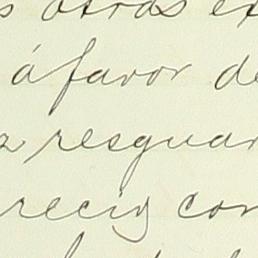 s otras ex
á favor de
a resguar
recig con